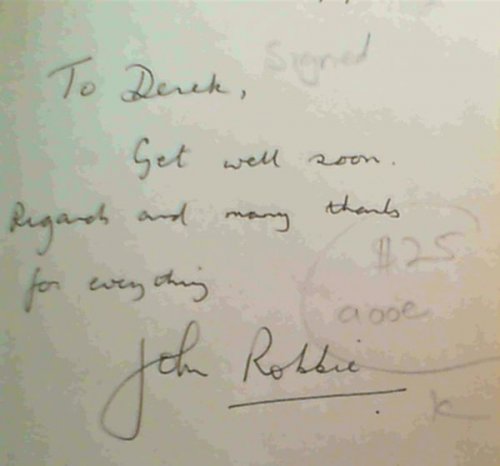 Signed
To Derek,
Get well soon.
Regards and many thanks
for everything
$25
John Robbie